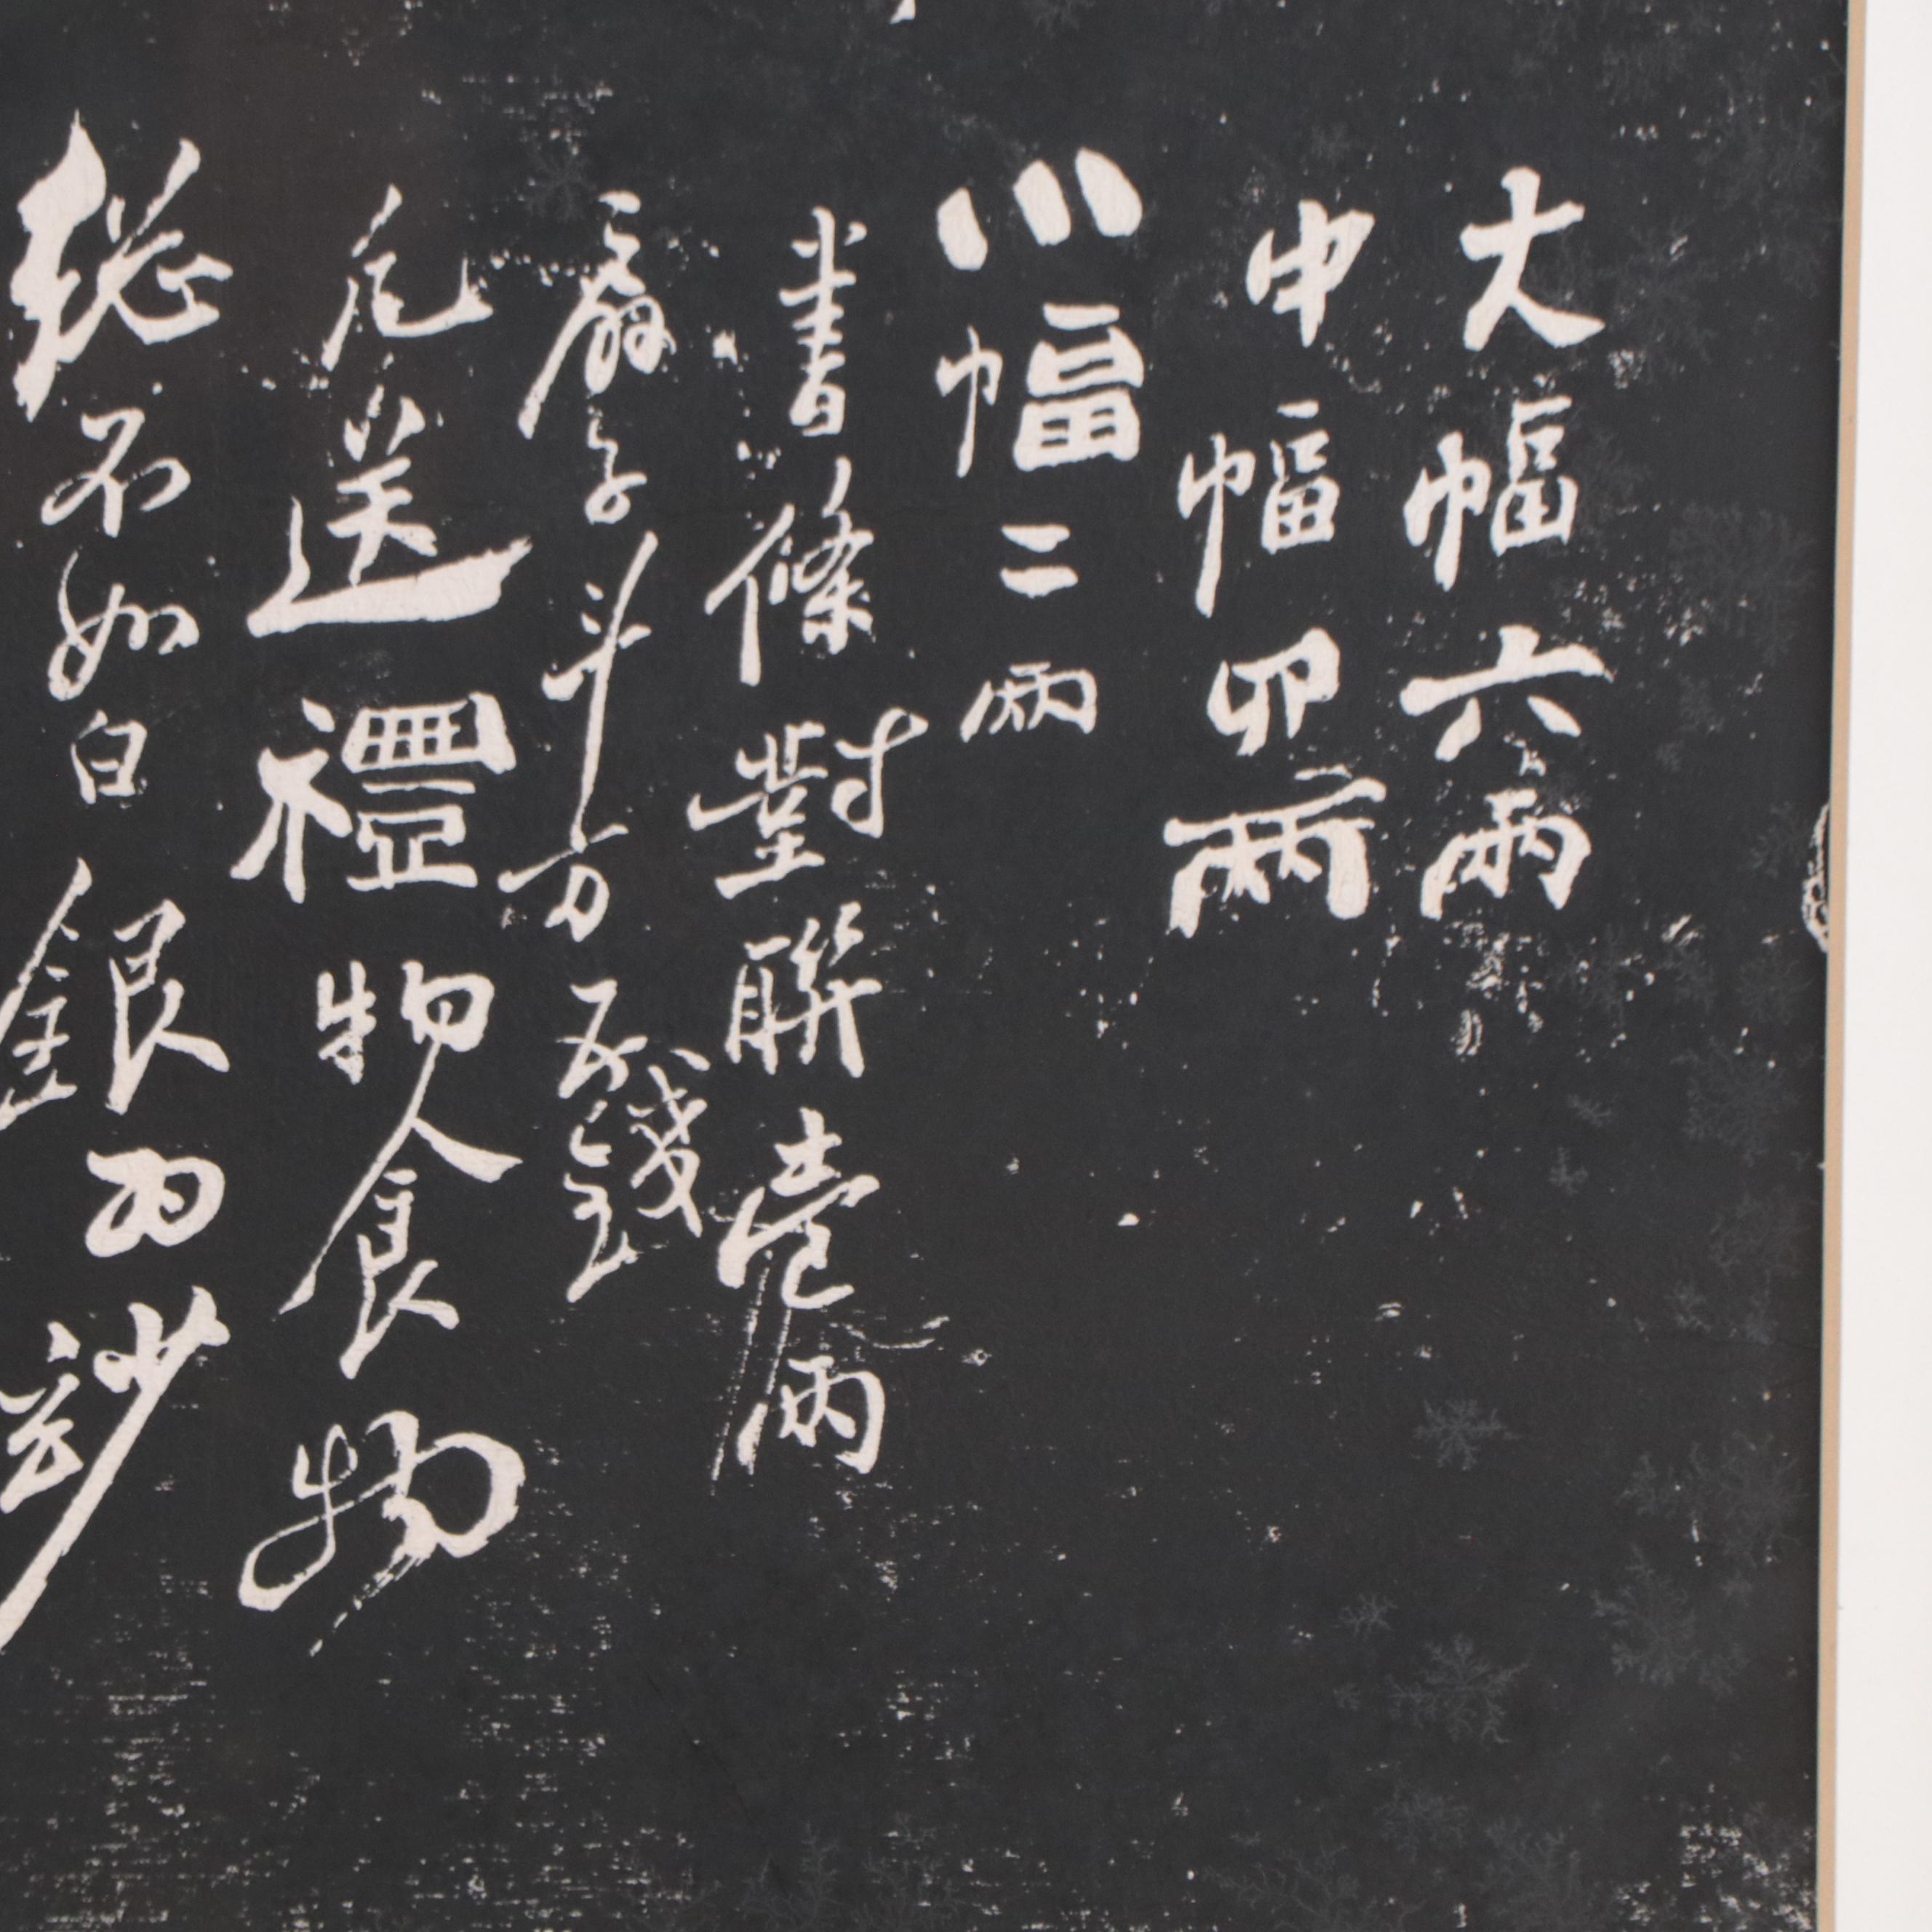 大幅六兩
中幅四兩
小幅二兩
書條對聯壹兩
扇子斗方五錢
凡送禮物食物
總不如白銀為妙